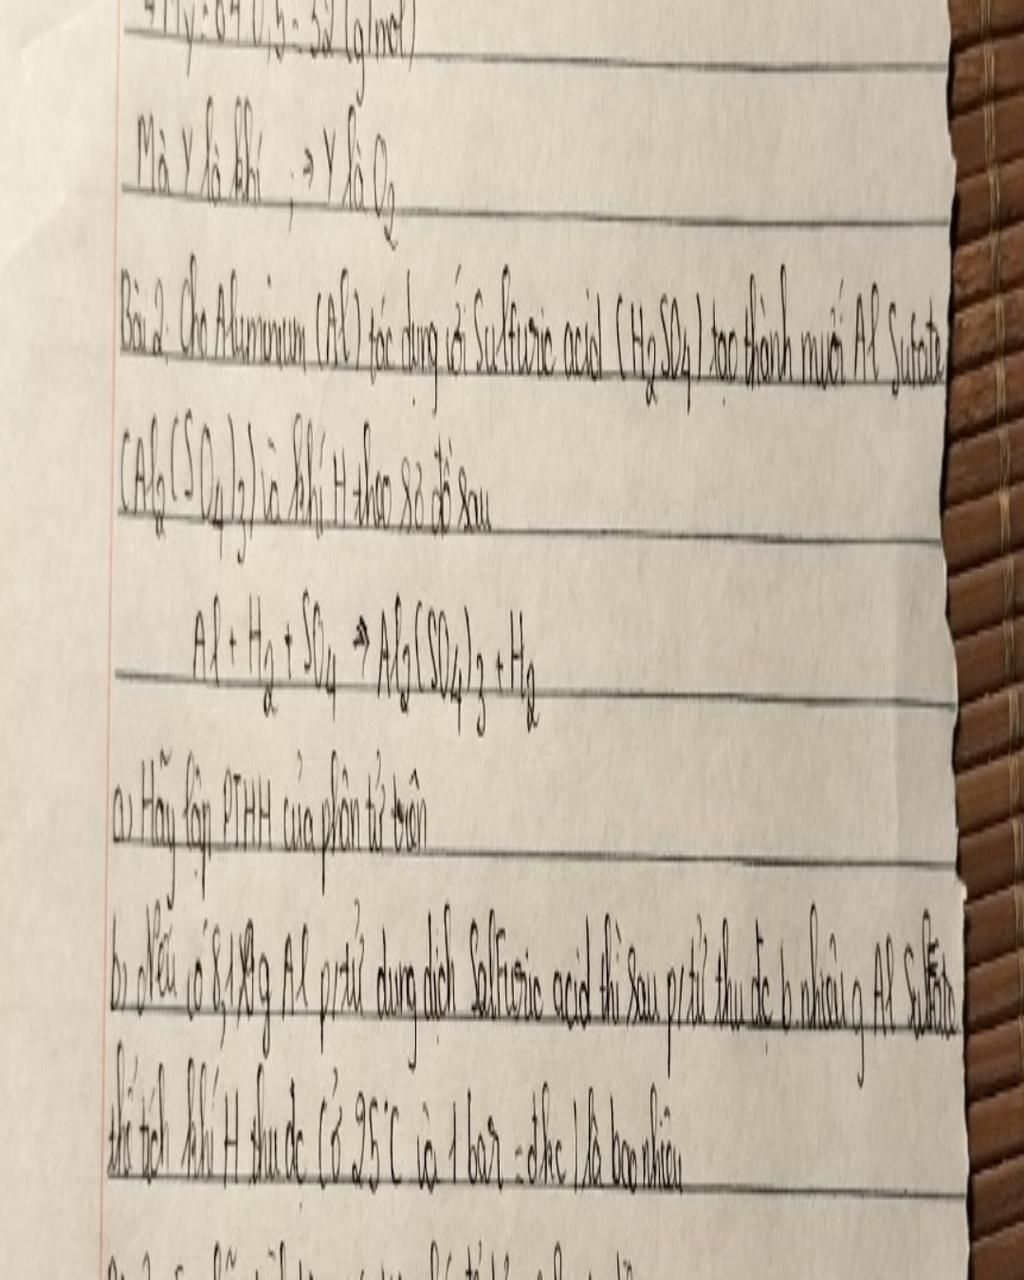 Mà Y là khí, → Y là O₂
Bài 2. Cho Aluminum (Al) tác dụng với Sulfuric acid (H₂SO₄) tạo thành muối Al Sufate
(Al₂(SO₄)₃) và khí H theo sơ đồ sau
Al + H₂ + SO₄ → Al₂(SO₄)₃ + H₂
a) Hãy lập PTHH của phân tử trên
b) Nếu có 8,1 g Al p/tử dung dịch Salfuric acid thì sau p/tử thu đc b.nhiêu g Al Sulfate
thể tích khí H thu đc (ở 25°C và 1 bar = đkc) là bao nhiêu